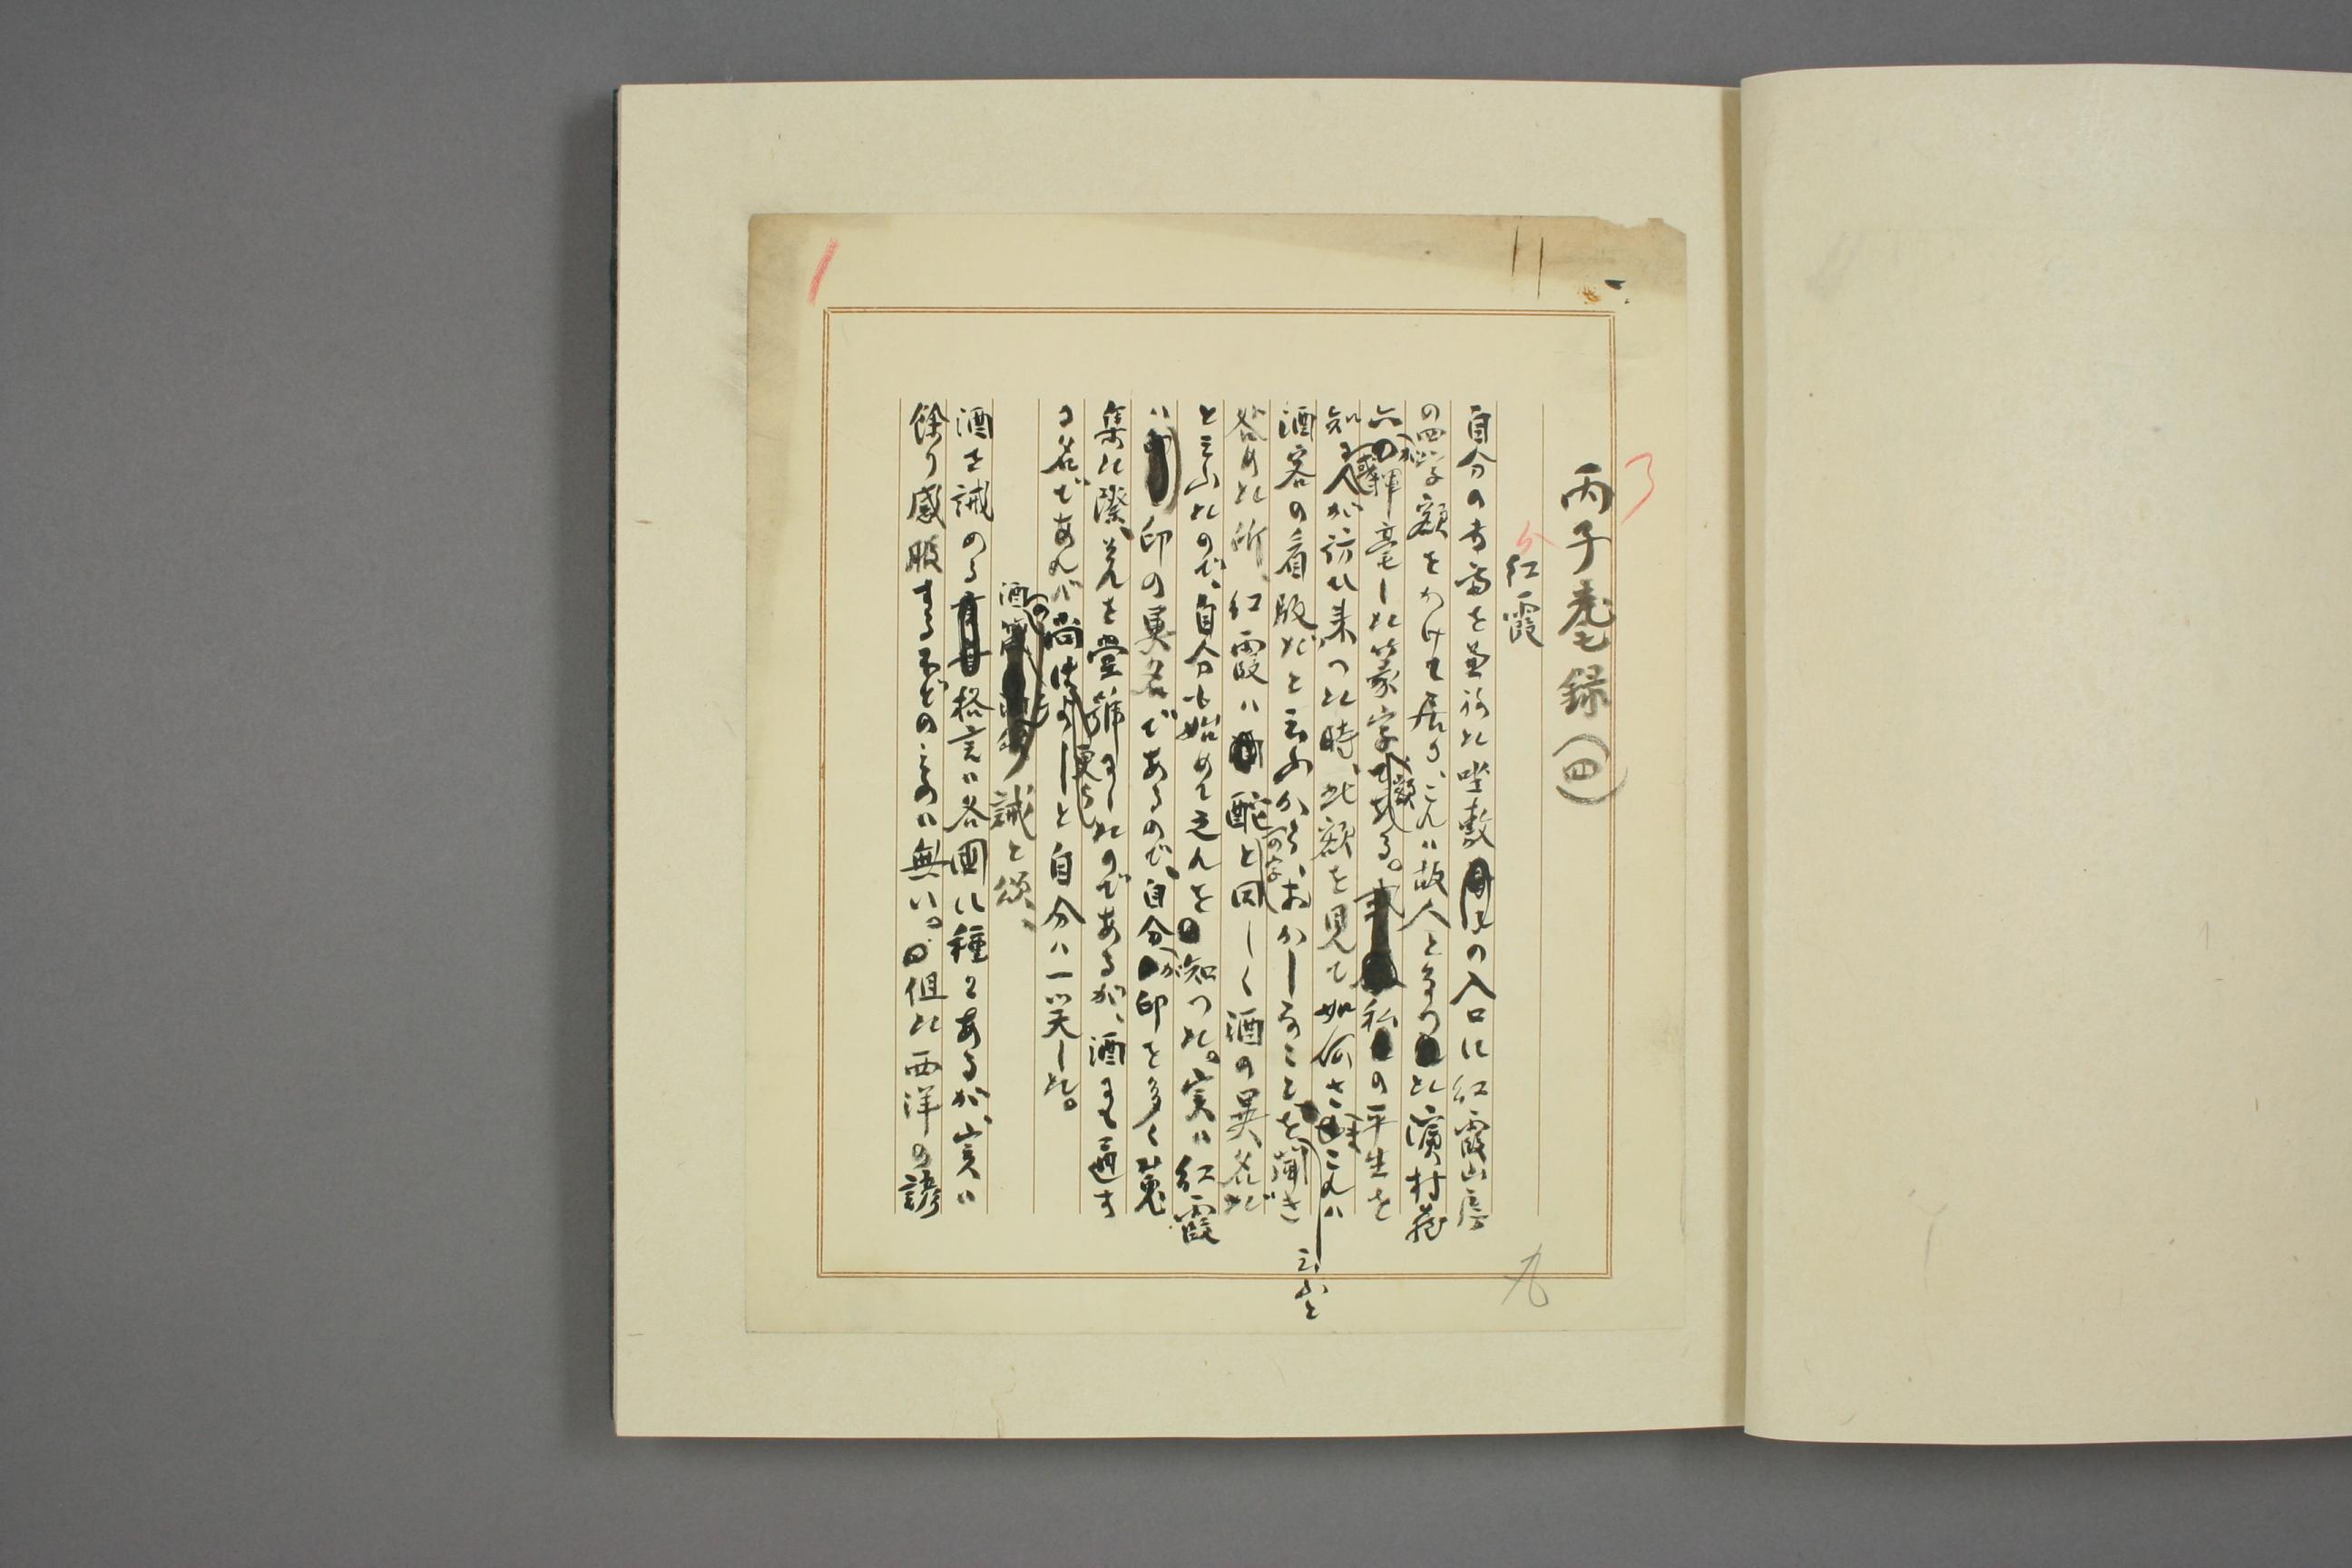 丙子耄録(四)
紅霞
自分の書斎を兼ねた坐敷の入口に紅霞山房
の四字額をかけて居る、これは故人となつた濱村蔵
六が揮毫した篆字額である。私の平生を
知る或人が訪れ来つた時、此額を見て如何さまこれは
酒客の看版だと云ふから、おかしなことを云ふと聞き
咎めた所、紅霞は酡の字と同しく酒の異名だ
と云ふたので、自分も始めて之れを知つた。実は紅霞
は印の異名であるので、自分が印を多く蒐
集た際、それを堂號にしたのであるが、酒にも通す
る名であれば尚更らよしと自分は一笑した。
酒の誡と頌、
酒を誡める格言は各国に種々あるが、実は
餘り感服するほどのものは無い。但た西洋の諺
九